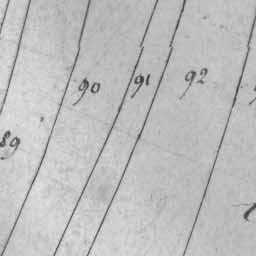 90 91 92
89